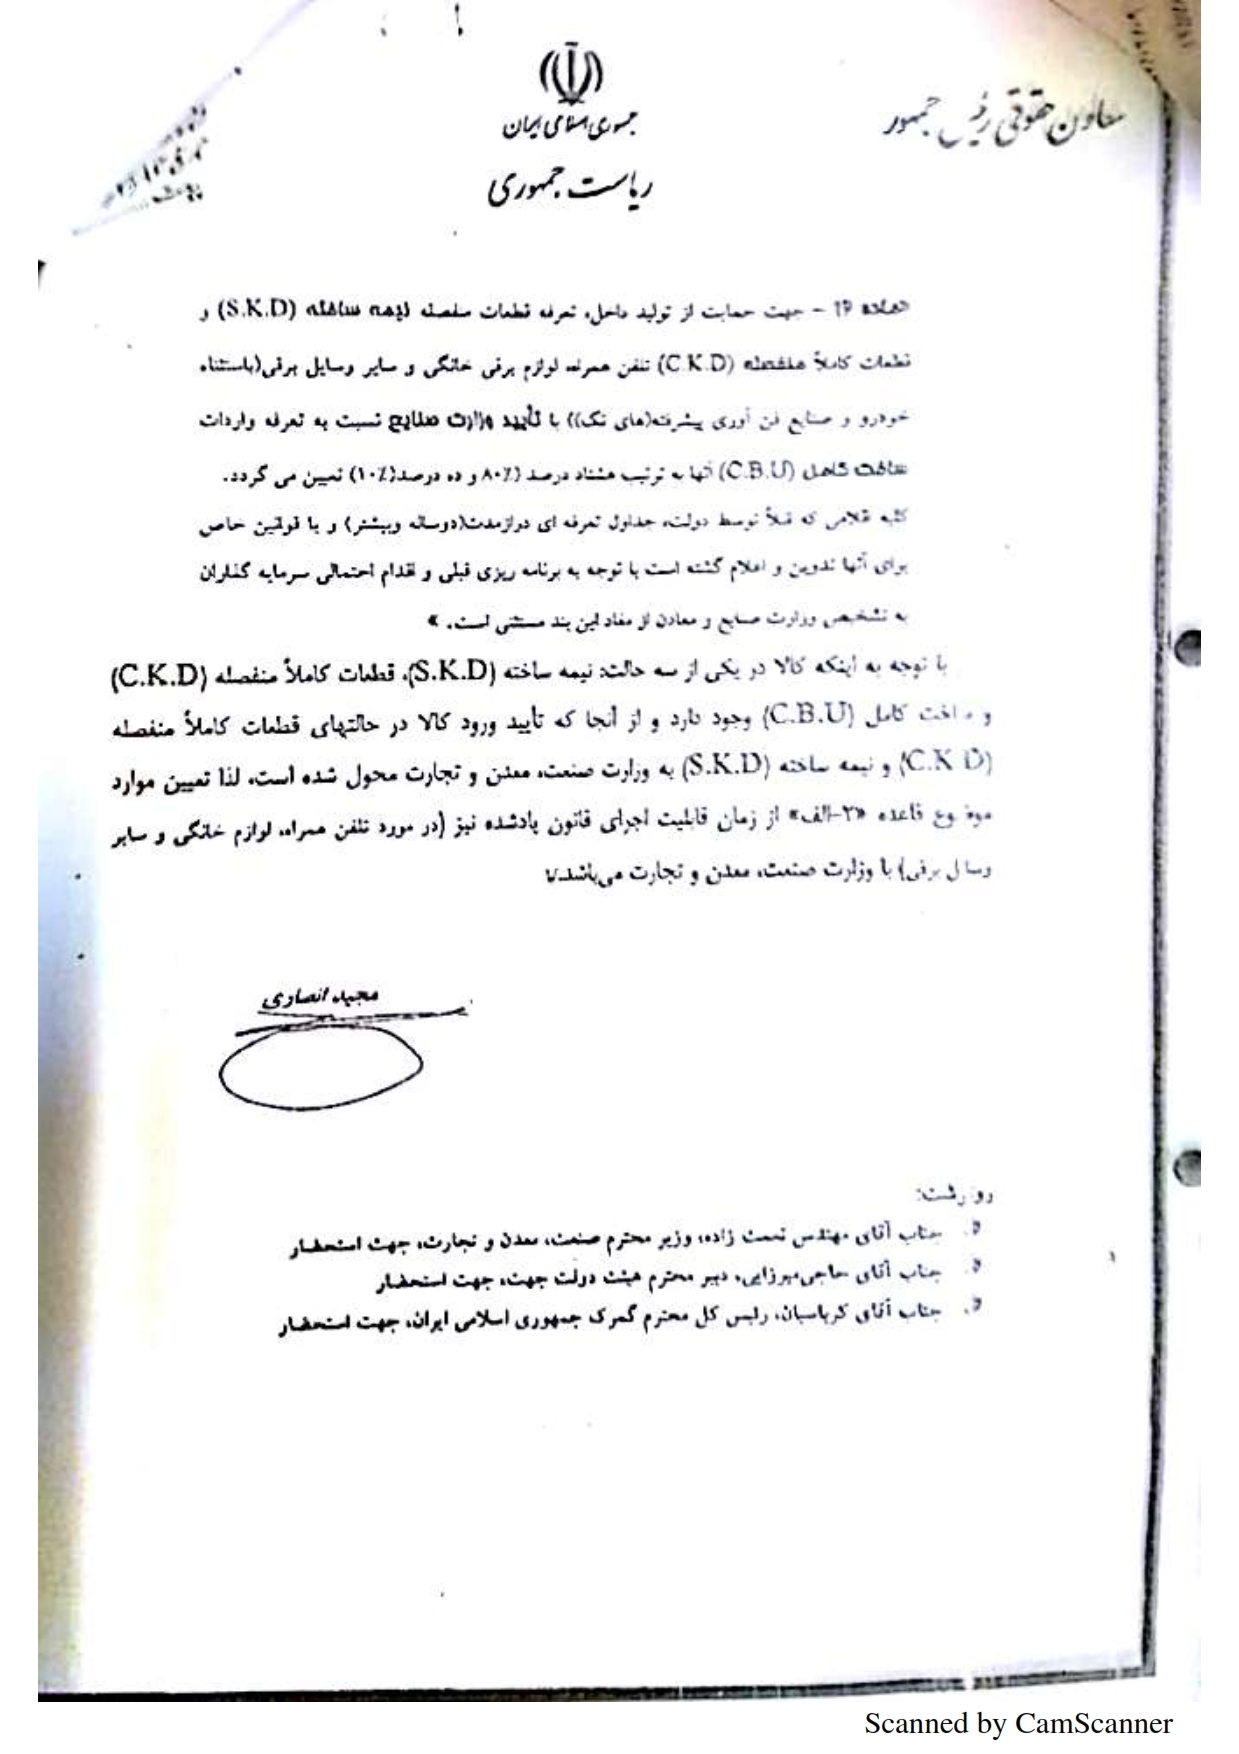 جمهوری اسلامی ایران
ریاست جمهوری
معاون حقوقی رئیس جمهور
ماده 19 - جهت حمایت از تولید داخل، تعرفه قطعات منفصله نیمه ساخته (S.K.D) و
قطعات کاملاً منفصله (C.K.D) تلفن همراه، لوازم برقی خانگی و سایر وسایل برقی(باستثناء
خودرو و صنایع فن آوری پیشرفته(های تک)) با تأیید وزارت صنایع نسبت به تعرفه واردات
ساخت کامل (C.B.U) آنها به ترتیب هشتاد درصد (۸۰٪ و ده درصد(۱۰٪) تعیین می گردد.
کلیه اقلامی که قبلاً توسط دولت، جداول تعرفه ای درازمدت(دوساله وبیشتر) و یا قوانین خاص
برای آنها تدوین و اعلام گشته است با توجه به برنامه ریزی قبلی و اقدام احتمالی سرمایه گذاران
به تشخیص وزارت صنایع و معادن از مفاد این بند مستثنی است. »
با توجه به اینکه کالا در یکی از سه حالت: نیمه ساخته (S.K.D)، قطعات کاملاً منفصله (C.K.D)
و ساخت کامل (C.B.U) وجود دارد و از آنجا که تأیید ورود کالا در حالتهای قطعات کاملاً منفصله
(C.K.D) و نیمه ساخته (S.K.D) به وزارت صنعت، معدن و تجارت محول شده است، لذا تعیین موارد
موضوع قاعده «۲-الف» از زمان قابلیت اجرای قانون یادشده نیز (در مورد تلفن همراه، لوازم خانگی و سایر
وسایل برقی) با وزارت صنعت، معدن و تجارت می‌باشد.۷
مجید انصاری
رونوشت:
جناب آقای مهندس نعمت زاده، وزیر محترم صنعت، معدن و تجارت، جهت استحضار
جناب آقای حاجی‌میرزایی، دبیر محترم هیئت دولت جهت، جهت استحضار
جناب آقای کرباسیان، رئیس کل محترم گمرک جمهوری اسلامی ایران، جهت استحضار
Scanned by CamScanner